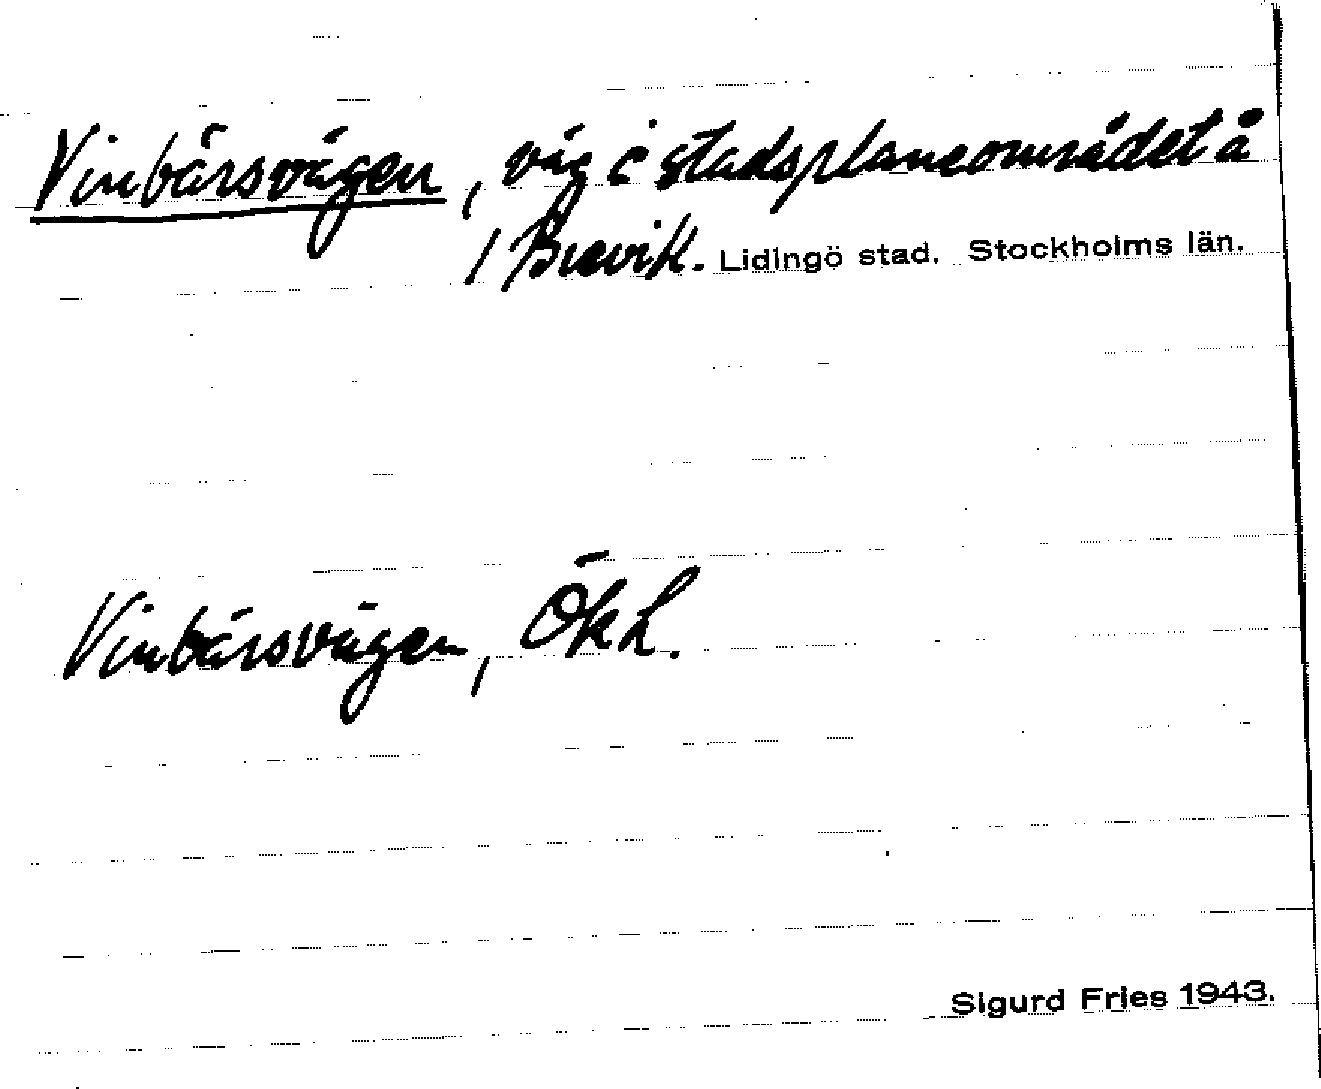 Vinbärsvägen, väg i stadsplaneområdet å
/ Brevik. Lidingö stad. Stockholms län.
Vinbärsvägen, ÖkL.
Sigurd Fries 1943.